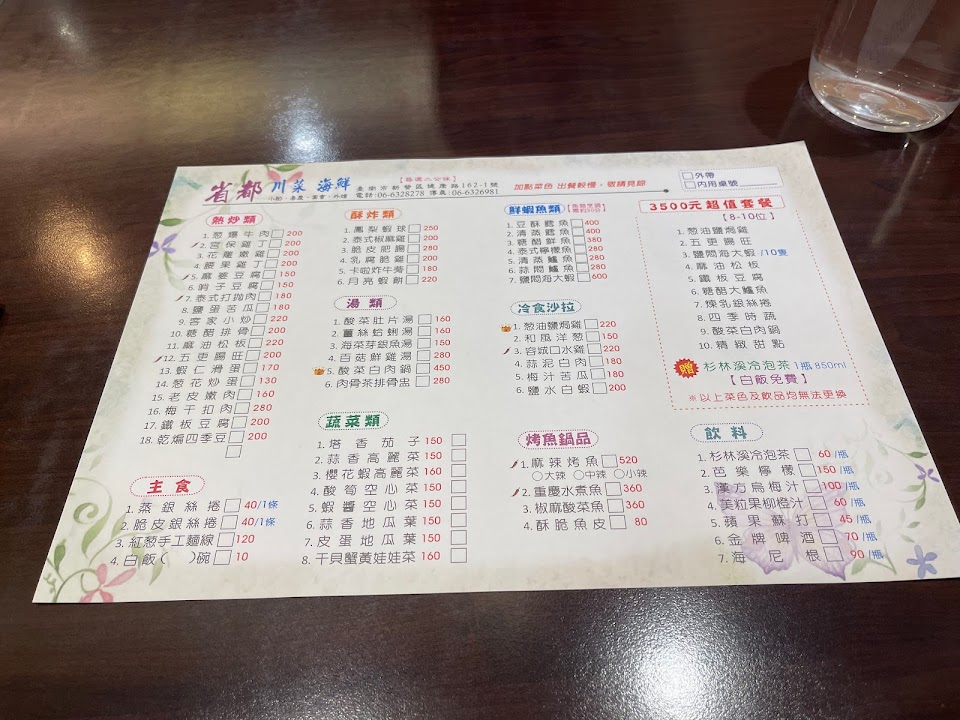 省都 川菜 海鮮
【每週二公休】
小酌‧喜慶‧宴會‧外燴
臺南市新營區健康路162-1號
電話:06-6328278 傳真:06-6326981
加點菜色 出餐較慢，敬請見諒
外帶
內用桌號
熱炒類
1.蔥爆牛肉 200
2.宮保雞丁 200
3.花雕嫩雞 200
4.腰果雞丁 200
5.麻婆豆腐 150
6.哨子豆腐 150
7.泰式打拋肉 180
8.鹽蛋苦瓜 180
9.客家小炒 220
10.糖醋排骨 200
11.麻油松板 220
12.五更腸旺 200
13.蝦仁滑蛋 170
14.蔥花炒蛋 130
15.老皮嫩肉 160
16.梅干扣肉 280
17.鐵板豆腐 200
18.乾煸四季豆 200
主食
1.蒸銀絲捲 40/1條
2.脆皮銀絲捲 40/1條
3.紅蔥手工麵線 120
4.白飯( )碗 10
酥炸類
1.鳳梨蝦球 250
2.泰式椒麻雞 200
3.脆皮肥腸 280
4.乳腐脆雞 200
5.卡啦炸牛蒡 180
6.月亮蝦餅 220
湯類
1.酸菜肚片湯 160
2.薑絲蛤蜊湯 160
3.海菜芽銀魚湯 150
4.百菇鮮雞湯 280
5.酸菜白肉鍋 450
6.肉骨茶排骨盅 280
蔬菜類
1.塔香茄子 150
2.蒜香高麗菜 150
3.櫻花蝦高麗菜 160
4.酸筍空心菜 150
5.蝦醬空心菜 150
6.蒜香地瓜葉 150
7.皮蛋地瓜葉 150
8.干貝蟹黃娃娃菜 160
鮮蝦魚類
1.豆酥鱈魚 400
2.清蒸鱈魚 400
3.糖醋鮮魚 380
4.泰式檸檬魚 280
5.清蒸鱸魚 280
6.蒜悶鱸魚 280
7.鹽悶海大蝦 600
冷食沙拉
1.蔥油鹽焗雞 220
2.和風洋蔥 150
3.容城口水雞 220
4.蒜泥白肉 180
5.梅汁苦瓜 180
6.鹽水白蝦 200
烤魚鍋品
1.麻辣烤魚 520
○大辣 ○中辣 ○小辣
2.重慶水煮魚 360
3.椒麻酸菜魚 360
4.酥脆魚皮 80
3500元超值套餐
【8-10位】
1.蔥油鹽焗雞
2.五更腸旺
3.鹽悶海大蝦/10隻
4.麻油松板
5.鐵板豆腐
6.糖醋大鱸魚
7.煉乳銀絲捲
8.四季時蔬
9.酸菜白肉鍋
10.精緻甜點
贈 杉林溪冷泡茶1瓶850ml
【白飯免費】
※以上菜色及飲品均無法更換
飲料
1.杉林溪冷泡茶 60/瓶
2.芭樂檸檬 150/瓶
3.漢方烏梅汁 100/瓶
4.美粒果柳橙汁 60/瓶
5.蘋果蘇打 45/瓶
6.金牌啤酒 70/瓶
7.海尼根 90/瓶